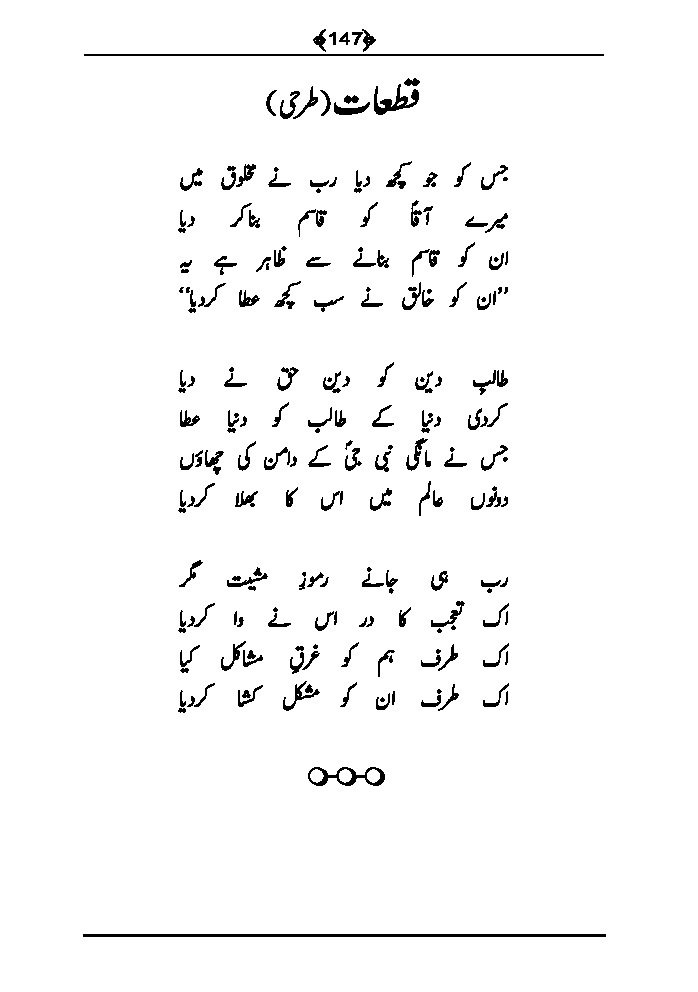 ﴿147﴾
قطعات (طرحی)
جس کو جو کچھ دیا رب نے مخلوق میں
میرے آقاؐ کو قاسم بناکر دیا
ان کو قاسم بنانے سے ظاہر ہے یہ
’’ان کو خالق نے سب کچھ عطا کردیا‘‘
طالبِ دین کو دین حق نے دیا
کردی دنیا کے طالب کو دنیا عطا
جس نے مانگی نبی جیؐ کے دامن کی چھاؤں
دونوں عالم میں اس کا بھلا کردیا
رب ہی جانے رموزِ مشیت مگر
اک تعجب کا در اس نے وا کردیا
اک طرف ہم کو غرقِ مشاکل کیا
اک طرف ان کو مشکل کشا کردیا